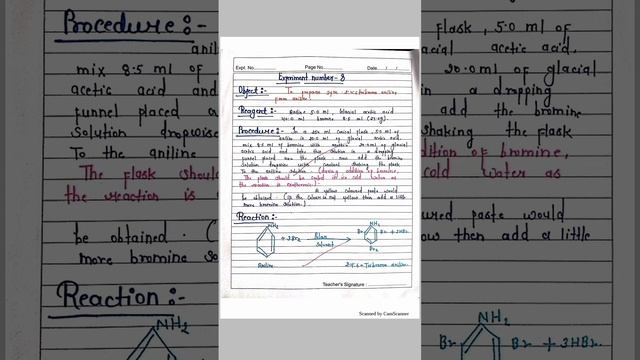 Procedure :-
anil
mix 8.5 ml of
acetic acid and
funnel placed a
Solution dropwise
To the aniline
The flask shou
the reaction is
be obtained. (
more bromine so
Reaction :-
NH2
Expt. No.
Page No.
Date / /
Expriment number- 8
Object :- To prepare 2,4,6 tribromo aniline
from aniline.
Reagent :- Aniline 5.0 ml, Glacial acetic acid
bromine 8.5 ml
Procedure :- In a 250 ml Conical flask, 5.0 ml of
aniline in 20.0 ml of glacial acetic acid.
mix 8.5 ml of bromine with 20.0 ml of glacial
acetic acid and take this solution in a dropping
funnel placed over the flask. now add the bromine
Solution dropwise with constant shaking the flask
To the aniline solution. (during addition of bromine,
The flask should be cooled in cold water as
the reaction is exothermic) -
A yellow coloured paste would
be obtained. (If the colour is not yellow then add a little
more bromine solution.)
Reaction :-
NH2
+ 3Br2
Solvent
NH2
Br
Br + 3HBr
Br
Aniline
2,4,6-Tribromo aniline.
Teacher's Signature
Scanned by CamScanner
flask, 5.0 ml of
acial acetic acid.
20.0 ml of glacial
in a dropping
add the bromine
shaking the flask
dition of bromine,
cold water as
ured paste would
ow then add a little
NH2
Br
Br + 3HBr.